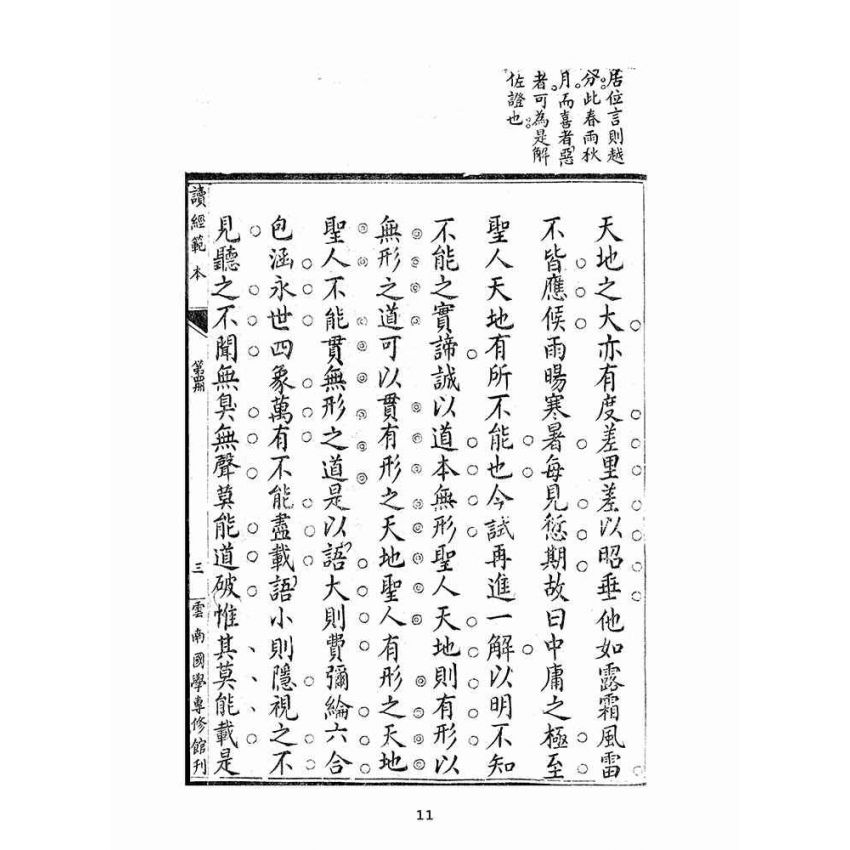 居位言則越
分此春雨秋
月而喜者惡
者可為是解
佐證也
天地之大亦有度差里差以昭垂他如露霜風雷
不皆應候雨暘寒暑每見愆期故曰中庸之極至
聖人天地有所不能也今試再進一解以明不知
不能之實諦誠以道本無形聖人天地則有形以
無形之道可以貫有形之天地聖人有形之天地
聖人不能貫無形之道是以語大則費彌綸六合
包涵永世四象萬有不能盡載語小則隱視之不
見聽之不聞無臭無聲莫能道破惟其莫能載是
讀經範本
第四册
三
雲南國學專修館刊
11